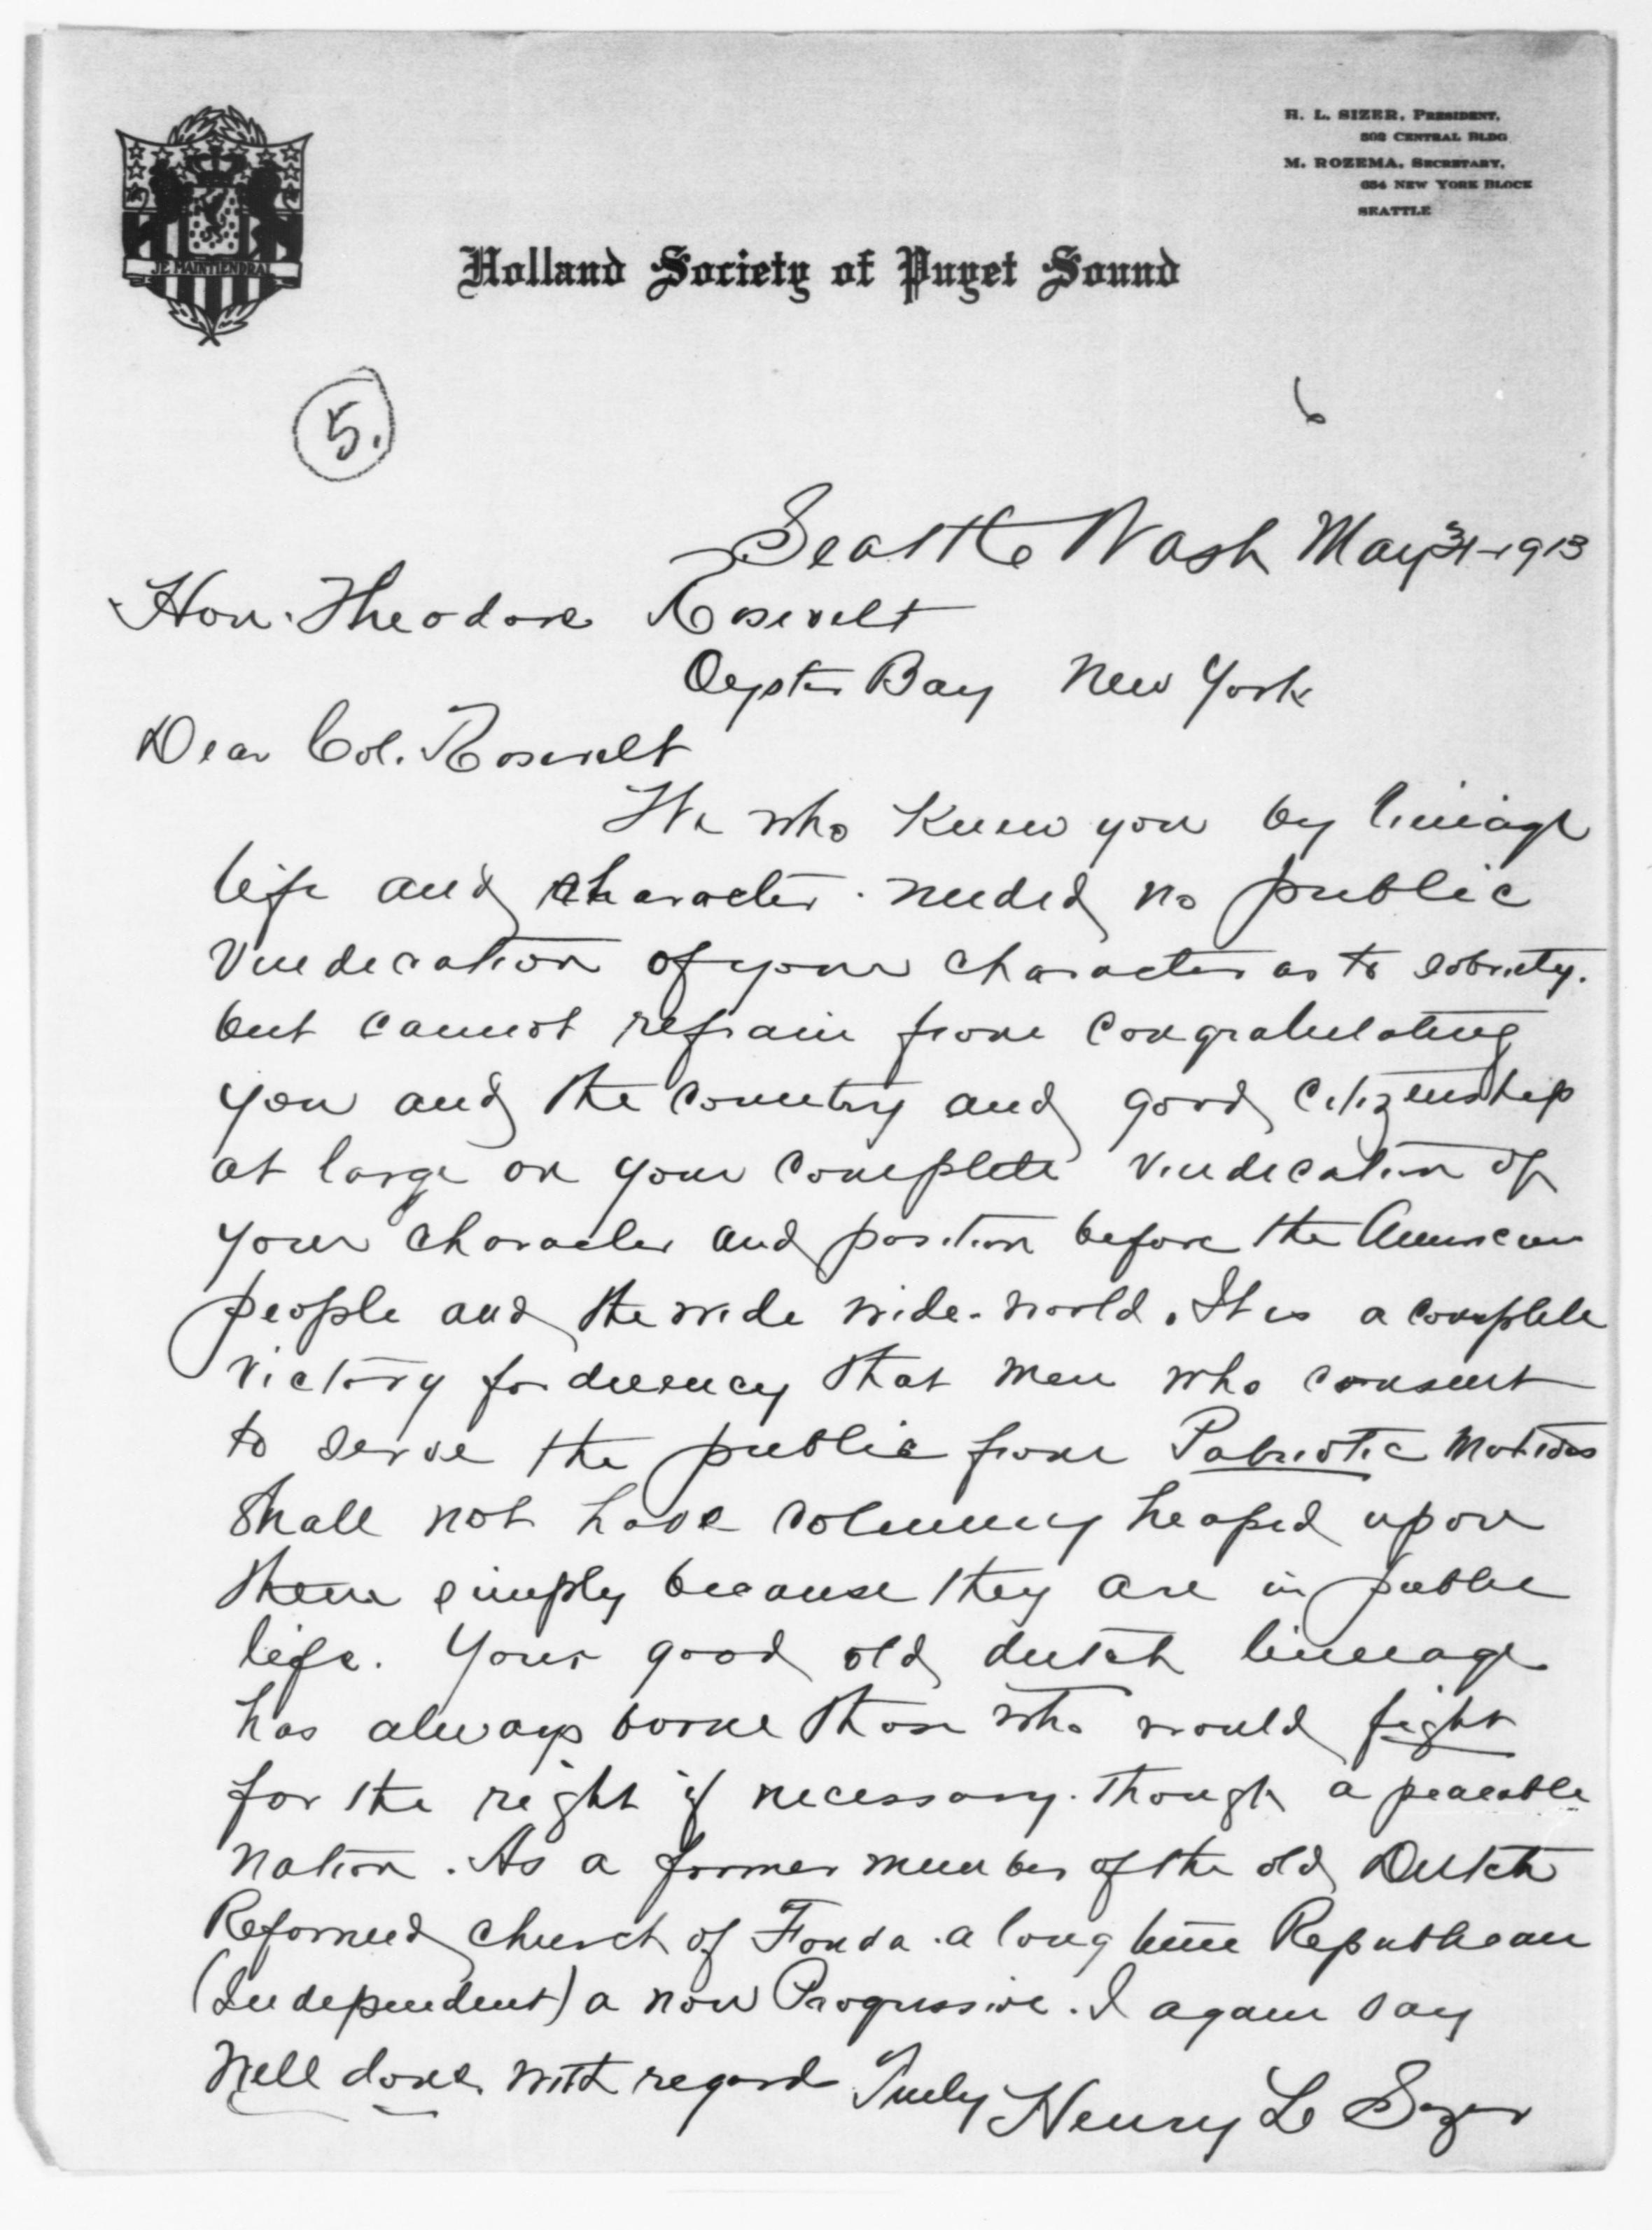 H. L. SIZER, PRESIDENT,
502 CENTRAL BLDG
M. ROZEMA, SECRETARY,
654 NEW YORK BLOCK
SEATTLE
JE MAINTIENDRAI
Holland Society of Puget Sound
5.
Seattle Wash May 31-1913
Hon. Theodore Roosevelt
Oyster Bay New York
Dear Col. Roosevelt
We who knew you by liniage
life and character. needed no public
Vindication of your character as to sobriety.
but cannot refrain from congratulating
you and the country and good citizenship
at large on your complete vindication of
your character and position before the American
people and the wide wide-world. It is a complete
victory for decency that men who consent
to serve the public from Patriotic motives
shall not have columny heaped upon
them simply because they are in public
life. Your good old dutch lineage
has always borne those who would fight
for the right if necessary. though a peaceable
nation. As a former member of the old Dutch
Reformed church of Fonda. a long time Republican
(Independent) a now Progressive. I again say
Well done, with regard Truly Henry L Sizer